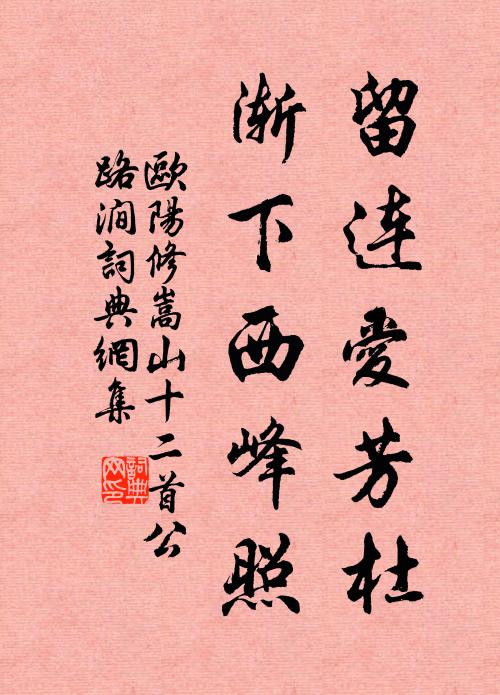 留连愛芳杜
渐下西峰照
歐陽修嵩山十二首公
路澗詞典網集
詞典
网印